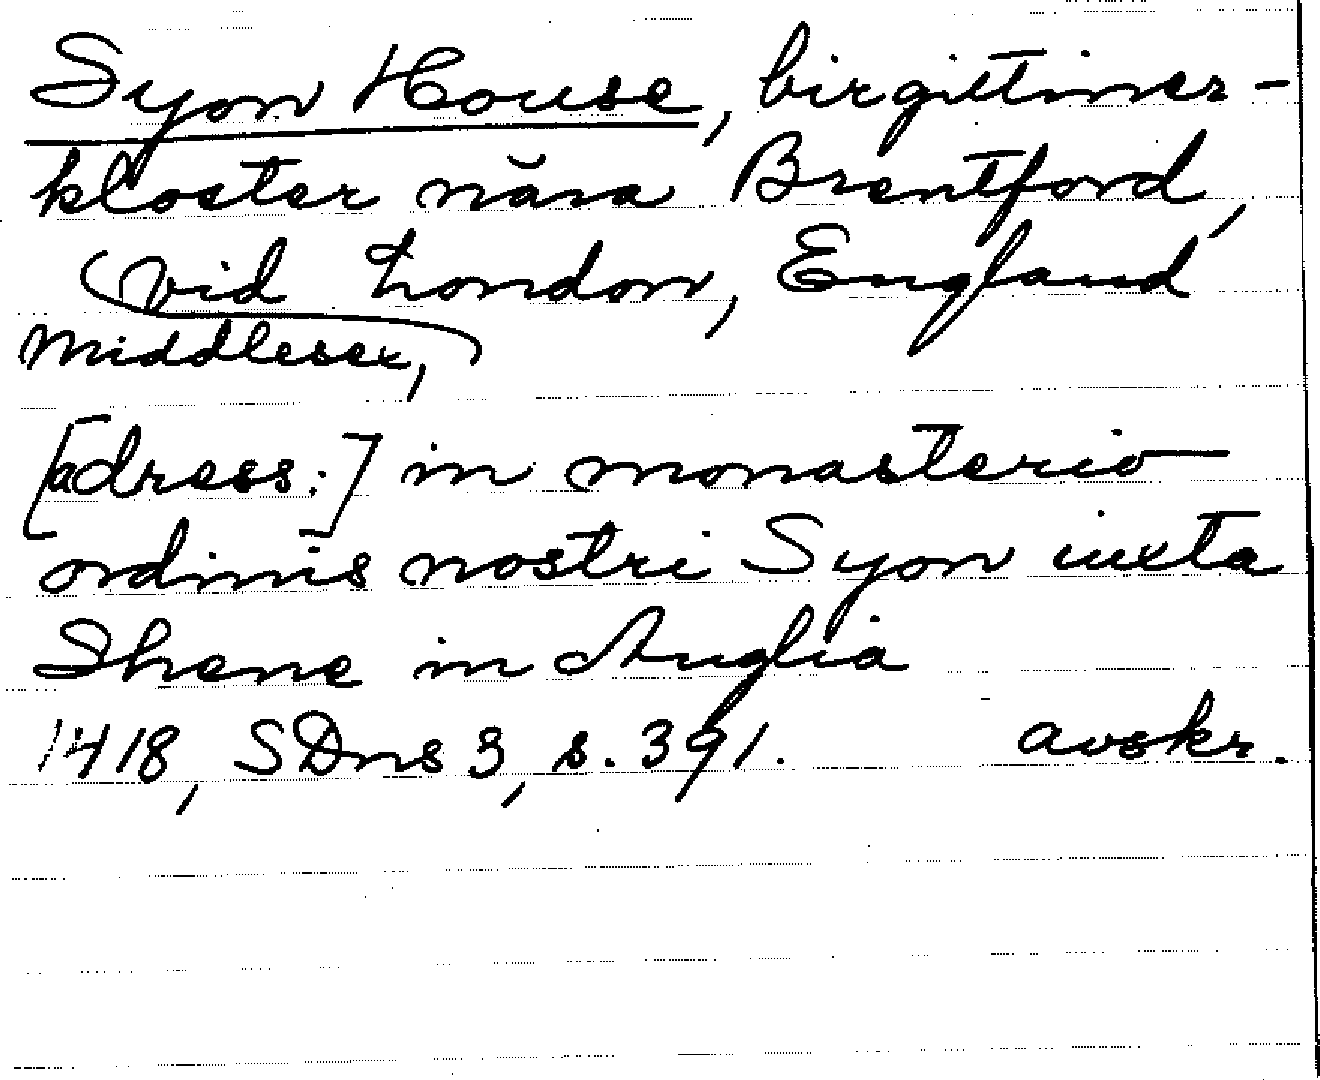 Syon House, birgittiner-
kloster nära Brentford,
vid London, England
Middlesex,
[adress:] in monasterio
ordinis nostri Syon iuxta
Shene in Anglia
1418, SDns 3, s. 391. avskr.